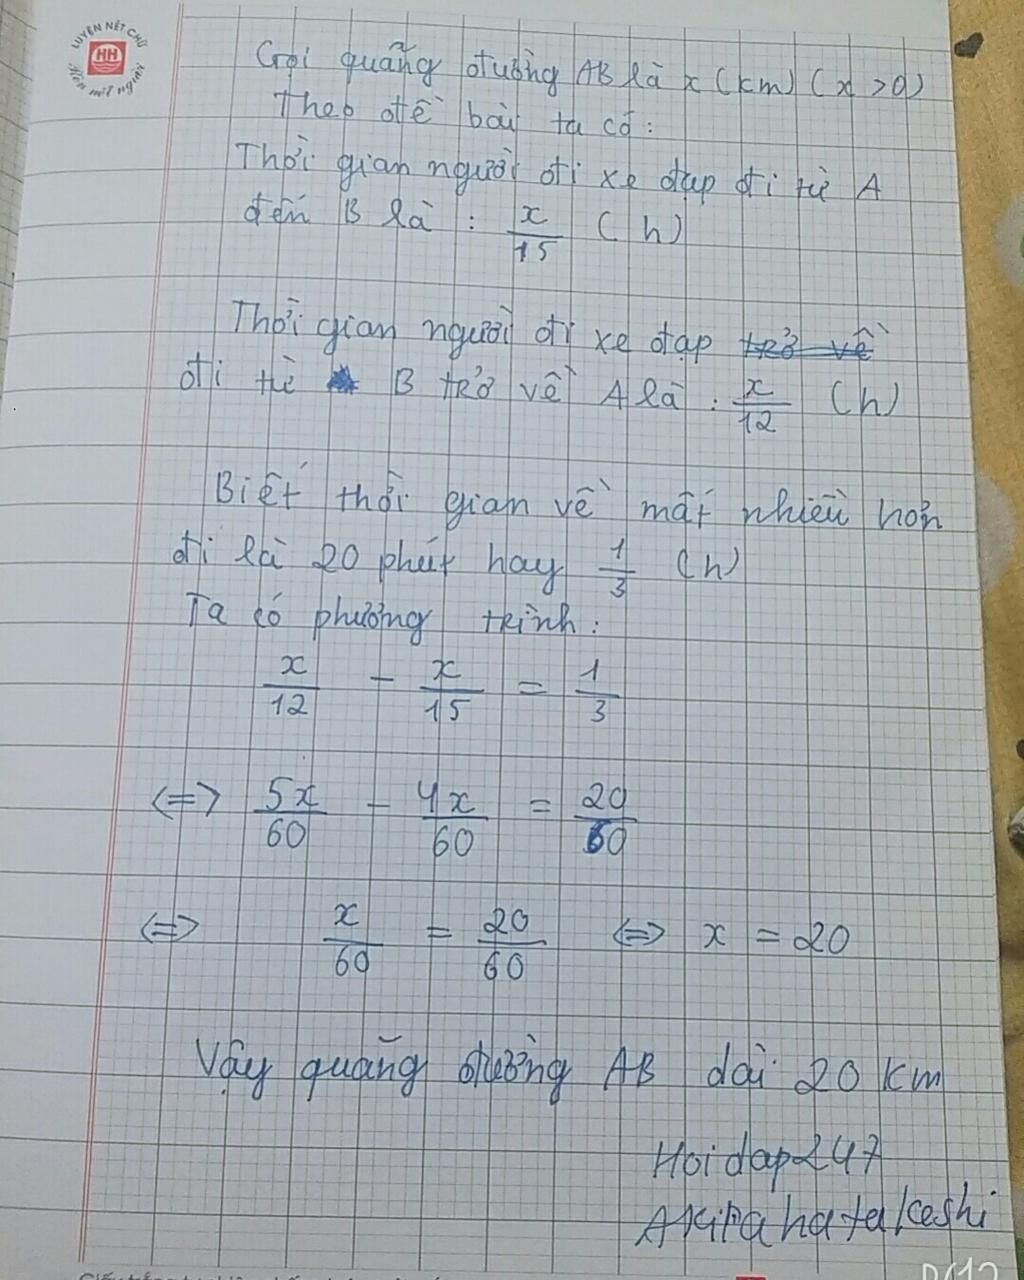 LUYỆN NÉT CHỮ
HH
Rèn nết người
Gọi quãng đường AB là x (km) (x > 0)
Theo đề bài ta có:
Thời gian người đi xe đạp đi từ A
đến B là : x/15 (h)
Thời gian người đi xe đạp trở về
đi từ B trở về A là : x/12 (h)
Biết thời gian về mất nhiều hơn
đi là 20 phút hay 1/3 (h)
Ta có phương trình:
x/12 - x/15 = 1/3
<=> 5x/60 - 4x/60 = 20/60
<=> x/60 = 20/60 <=> x = 20
Vậy quãng đường AB dài 20 km
Hoidap247
Akirahatakeshi